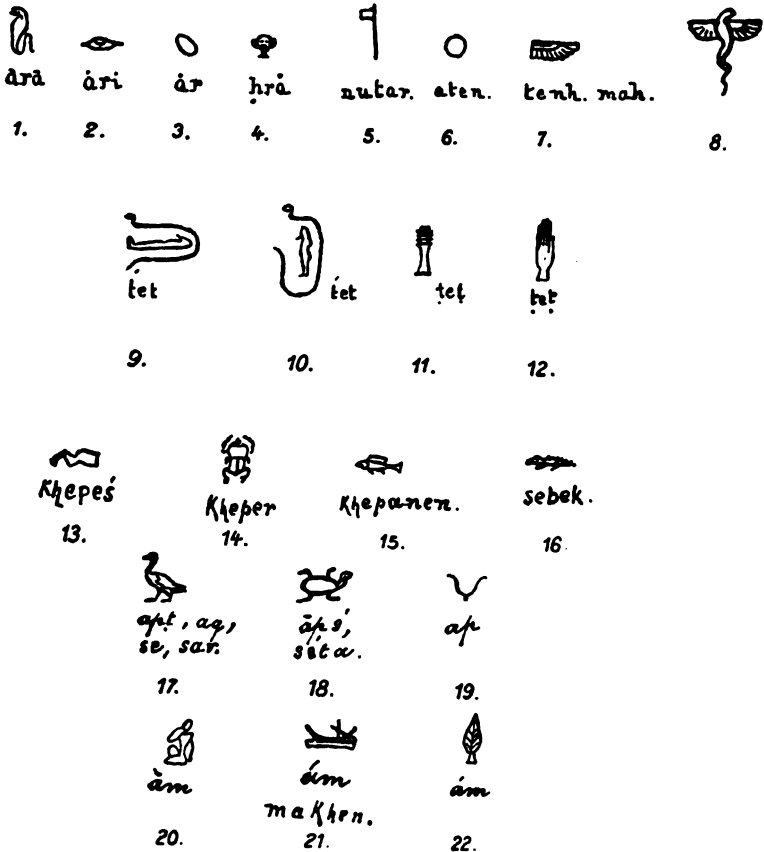 ārā ȧri ȧr ḥrȧ nutar. aten. tenh. mah.
1. 2. 3. 4. 5. 6. 7. 8.
tet tet ṭeṭ ṭeṭ
9. 10. 11. 12.
Khepeś Kheper Khepanen. sebek.
13. 14. 15. 16.
apṭ, aq, āpś, ap
se, sar. śéta.
17. 18. 19.
ȧm ám
makhen.
20. 21. 22.